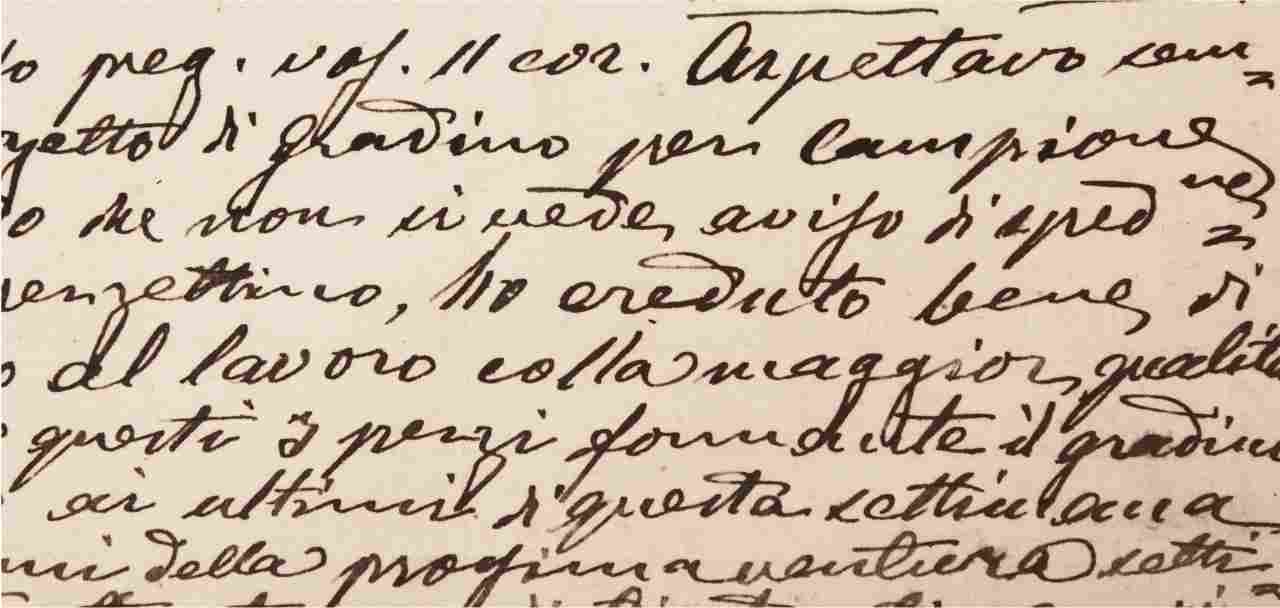 lo preg. vos. 11 cor. Aspettavo sem=
getto di gradino per campione
o che non si vede, aviso di sped=
penzettino, ho creduto bene, di
o al lavoro colla maggior qualità
questi 3 penzi formante il gradino
ai ultimi di questa settimana
mi della prossima ventura setti=